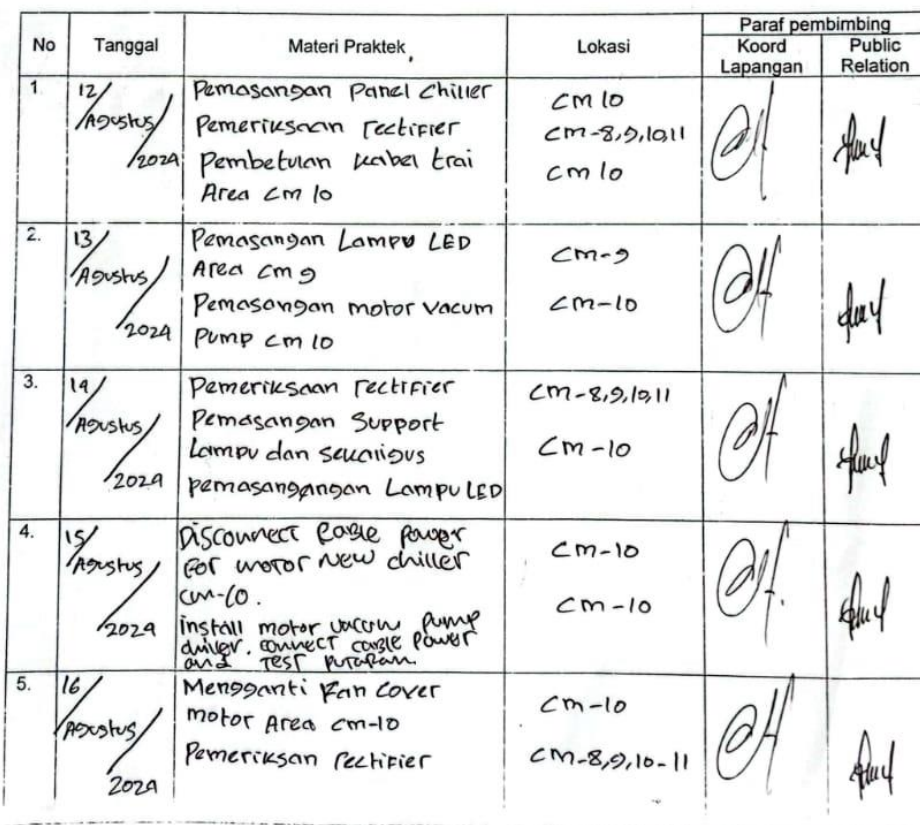 No Tanggal Materi Praktek Lokasi Paraf pembimbing
Koord Lapangan Public Relation
1. 12/Agustus/2024
Pemasangan Panel Chiller
Pemeriksaan rectifier
Pembetulan kabel trai
Area cm 10
cm 10
cm-8,9,10,11
cm 10
2. 13/Agustus/2024
Pemasangan Lampu LED
Area cm 9
Pemasangan motor vacum
Pump cm 10
cm-9
cm-10
3. 14/Agustus/2024
Pemeriksaan rectifier
Pemasangan Support
Lampu dan sekaligus
pemasangangan Lampu LED
cm-8,9,10,11
cm-10
4. 15/Agustus/2024
Disconnect cable power
for motor new chiller
cm-10.
install motor vacum pump
chiller, connect cable power
and test putaran.
cm-10
cm-10
5. 16/Agustus/2024
Mengganti Fan cover
motor Area cm-10
Pemeriksan rectifier
cm-10
cm-8,9,10-11